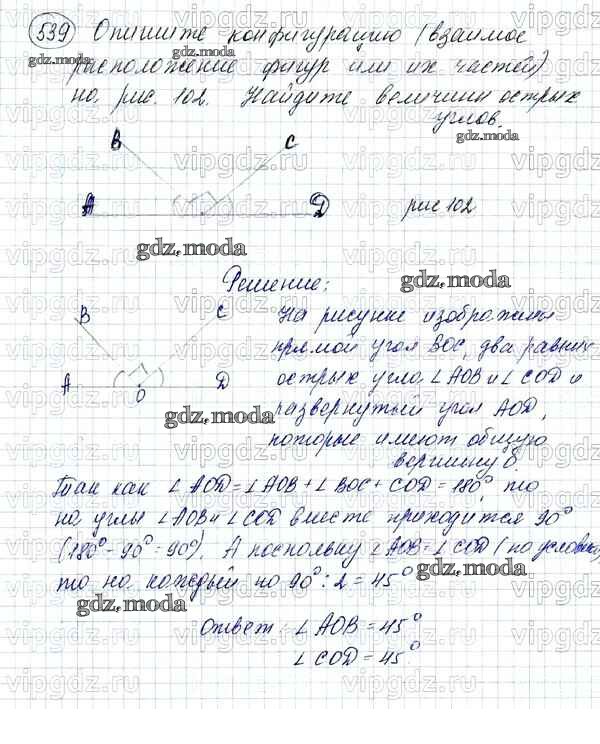 539 Опишите конфигурацию (взаимое
gdz.moda
gdz.moda
расположение фигур или их частей)
на рис. 102. Найдите величины острых
углов.
gdz.moda
B C
A D рис 102
gdz.moda
Решение:
gdz.moda
B C
A O D
gdz.moda
На рисунке изображены
прямой угол BOC, два равных
острых угла ∠AOB и ∠COD и
развернутый угол AOD,
которые имеют общую
вершину O.
Так как ∠AOD=∠AOB+∠BOC+COD=180°, то
на углы ∠AOB и ∠COD вместе приходится 90°
(180°-90°=90°). А поскольку ∠AOB=∠COD (по условию),
то на каждый по 90°:2=45°
gdz.moda
gdz.moda
Ответ: ∠AOB=45°
∠COD=45°
vipgdz